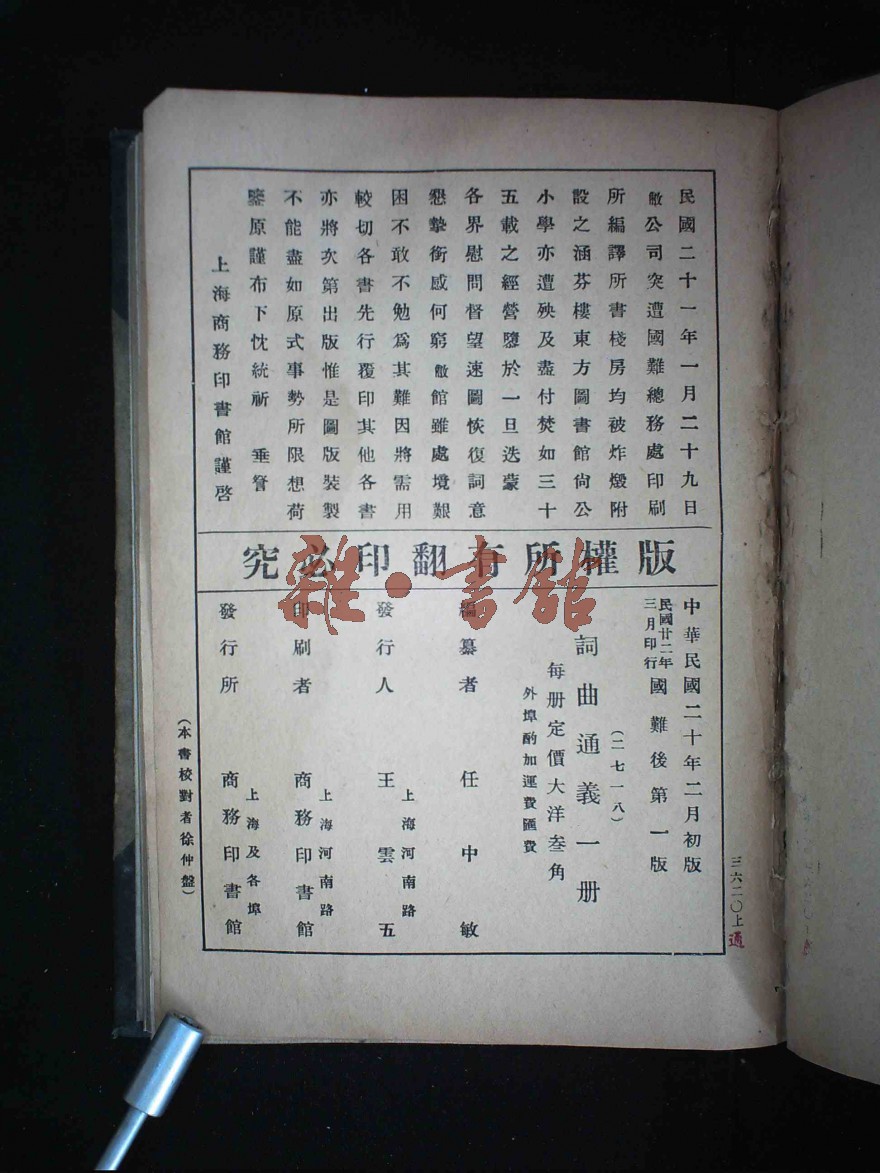 民國二十一年一月二十九日
敝公司突遭國難總務處印刷
所編譯所書棧房均被炸燬附
設之涵芬樓東方圖書館尙公
小學亦遭殃及盡付焚如三十
五載之經營隳於一旦迭蒙
各界慰問督望速圖恢復詞意
懇摯銜感何窮敝館雖處境艱
困不敢不勉爲其難因將需用
較切各書先行覆印其他各書
亦將次第出版惟是圖版裝製
不能盡如原式事勢所限想荷
鑒原謹布下忱統祈 垂詧
上海商務印書館謹啓
版權所有翻印必究
中華民國二十年二月初版
民國廿二年三月印行國難後第一版
(二七一八)
詞曲通義一册
每册定價大洋叁角
外埠酌加運費匯費
編纂者 任中敏
上海河南路
發行人 王雲五
上海河南路
印刷者 商務印書館
上海及各埠
發行所 商務印書館
(本書校對者徐仲盤)
三六二〇上
通
雜·書館